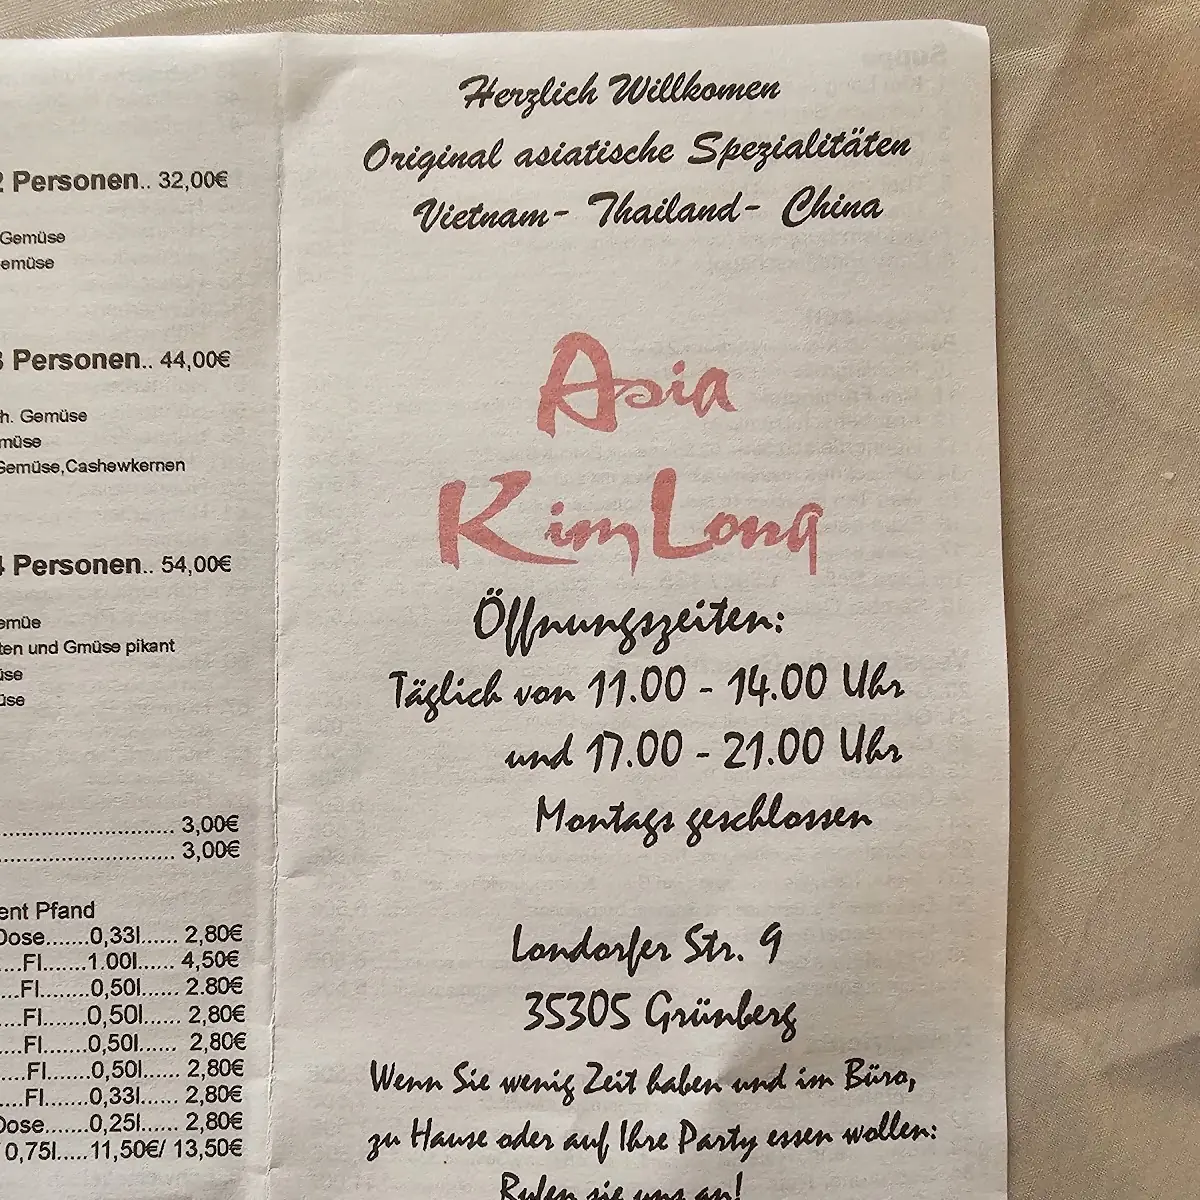 2 Personen.. 32,00€
Gemüse
emüse
3 Personen.. 44,00€
h. Gemüse
müse
Gemüse,Cashewkernen
4 Personen.. 54,00€
emüe
ten und Gmüse pikant
üse
üse
............................ 3,00€
............................ 3,00€
ent Pfand
Dose.......0,33l...... 2,80€
....Fl.......1.00l...... 4,50€
....Fl.......0,50l...... 2.80€
....Fl.......0,50l...... 2,80€
....Fl.......0,50l...... 2,80€
....Fl.......0,50l...... 2,80€
....Fl.......0,33l...... 2,80€
Dose.......0,25l...... 2,80€
0,75l.....11,50€/ 13,50€
Herzlich Willkomen
Original asiatische Spezialitäten
Vietnam- Thailand- China
Asia
Kim Long
Öffnungszeiten:
Täglich von 11.00 - 14.00 Uhr
und 17.00 - 21.00 Uhr
Montags geschlossen
Londorfer Str. 9
35305 Grünberg
Wenn Sie wenig Zeit haben und im Büro,
zu Hause oder auf Ihre Party essen wollen:
Rufen sie uns an!